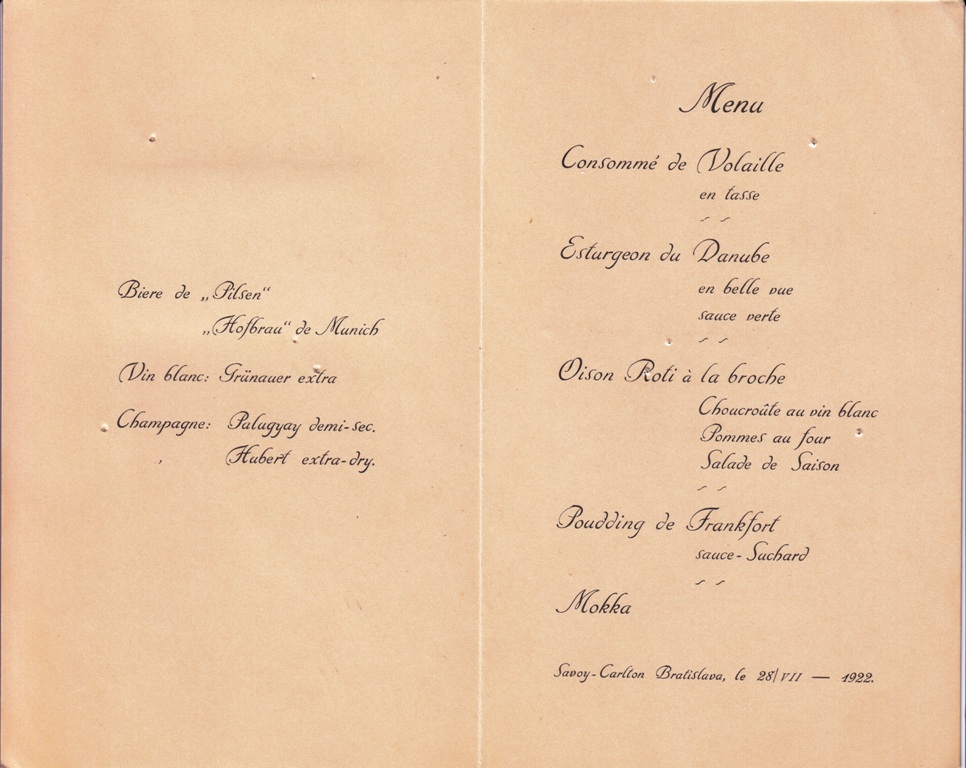 Biere de „Pilsen“
„Hofbrau“ de Munich
Vin blanc: Grünauer extra
Champagne: Palugyay demi-sec.
Hubert extra-dry.
Menu
Consommé de Volaille
en tasse
Esturgeon du Danube
en belle vue
sauce verte
Oison Roti à la broche
Choucroûte au vin blanc
Pommes au four
Salade de Saison
Poudding de Frankfort
sauce-Suchard
Mokka
Savoy-Carlton Bratislava, le 28/VII — 1922.